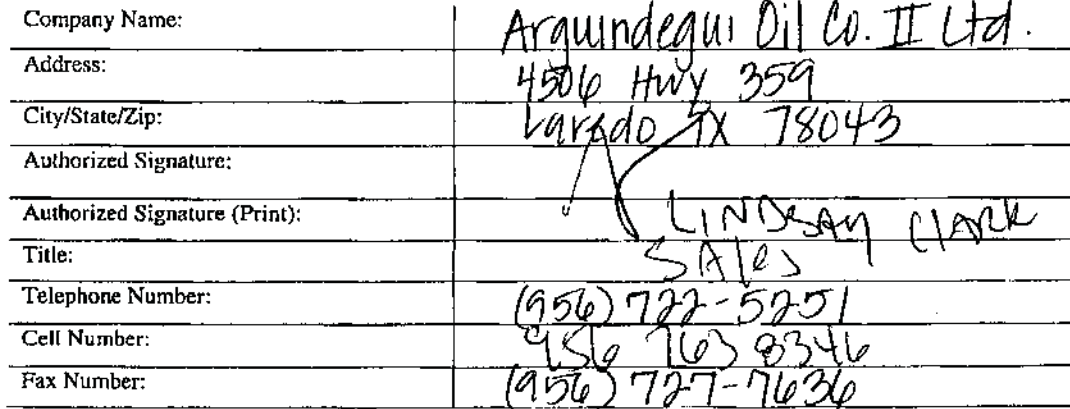 Company Name: Arguindegui Oil Co. II Ltd.
Address: 4506 Hwy 359
City/State/Zip: Laredo TX 78043
Authorized Signature:
Authorized Signature (Print): LINDSAY ClARK
Title: SAles
Telephone Number: (956) 722-5251
Cell Number: 956 763 8346
Fax Number: (956) 727-7636